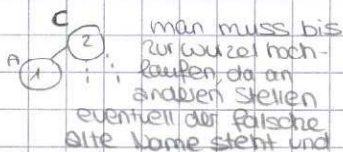 C
A
1
2
man muss bis
zur wurzel hoch-
laufen, da an
anderen stellen
eventuell der falsche
alte Name steht und